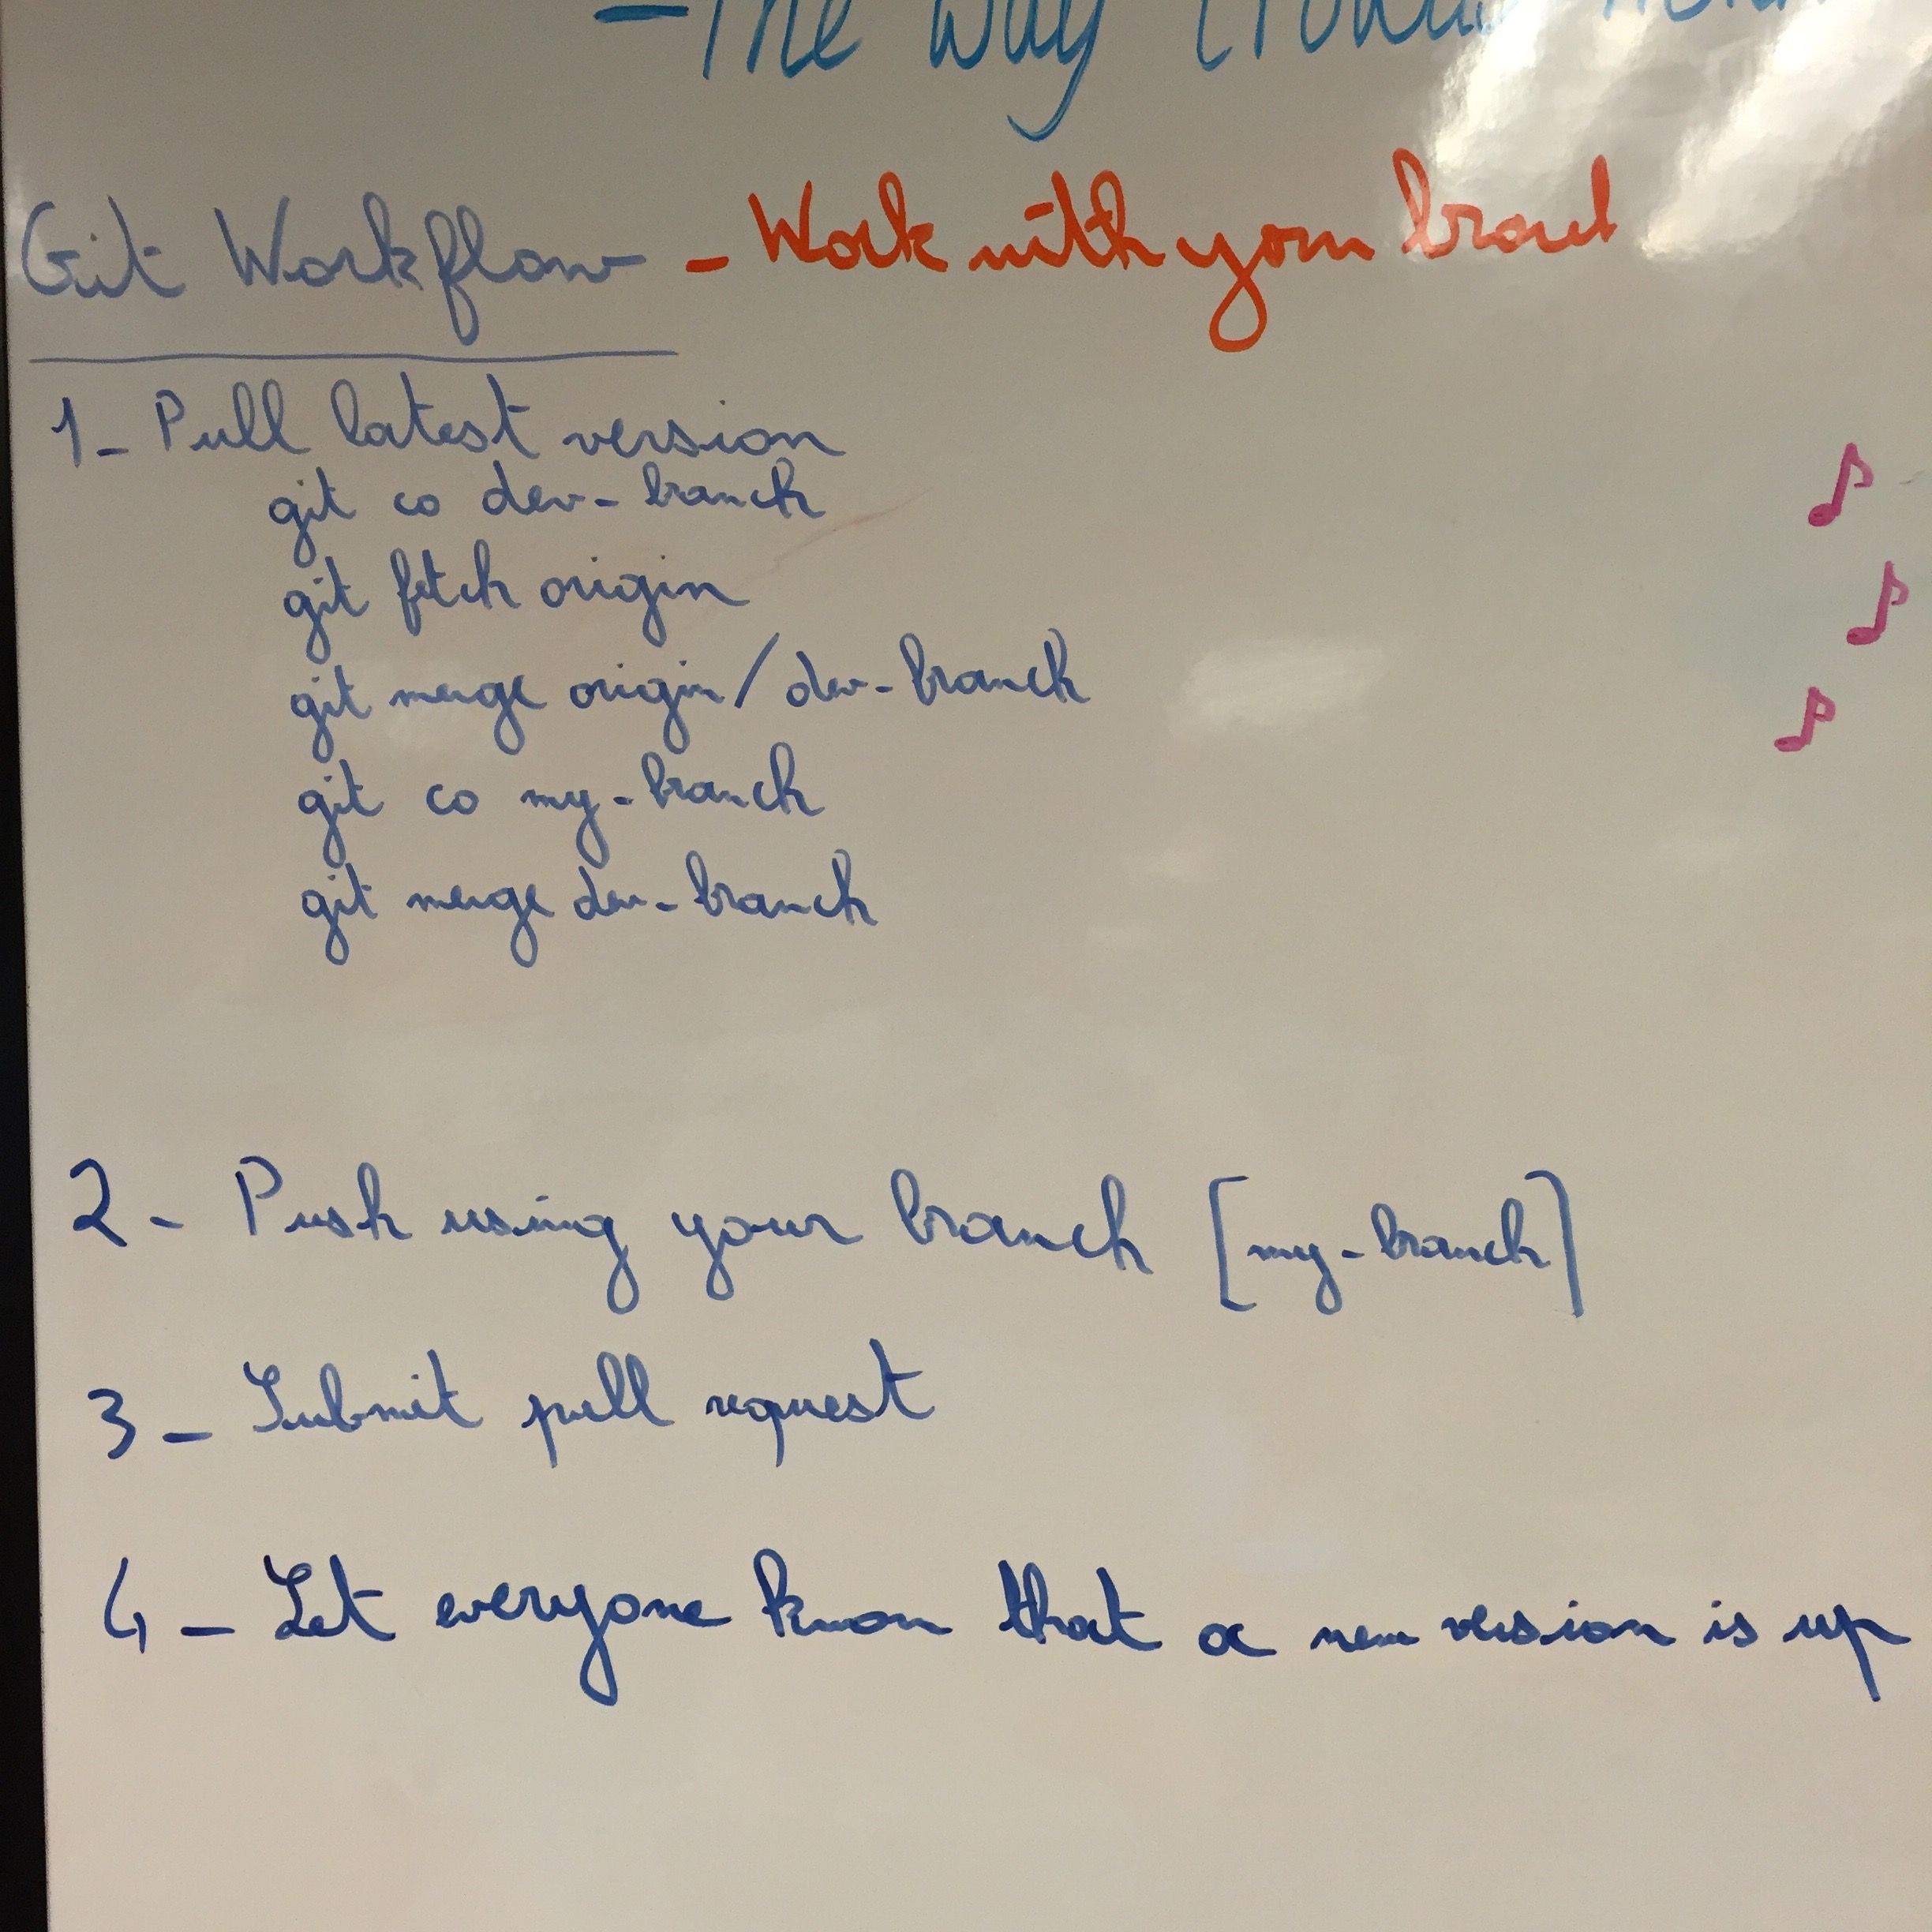 - The way
Git Workflow - Work with your
1- Pull latest version
git co dev-branch
git fetch origin
git merge origin/dev-branch
git co my-branch
git merge dev-branch
2- Push using your branch [my-branch]
3- Submit pull request
4- Let everyone know that a new version is up